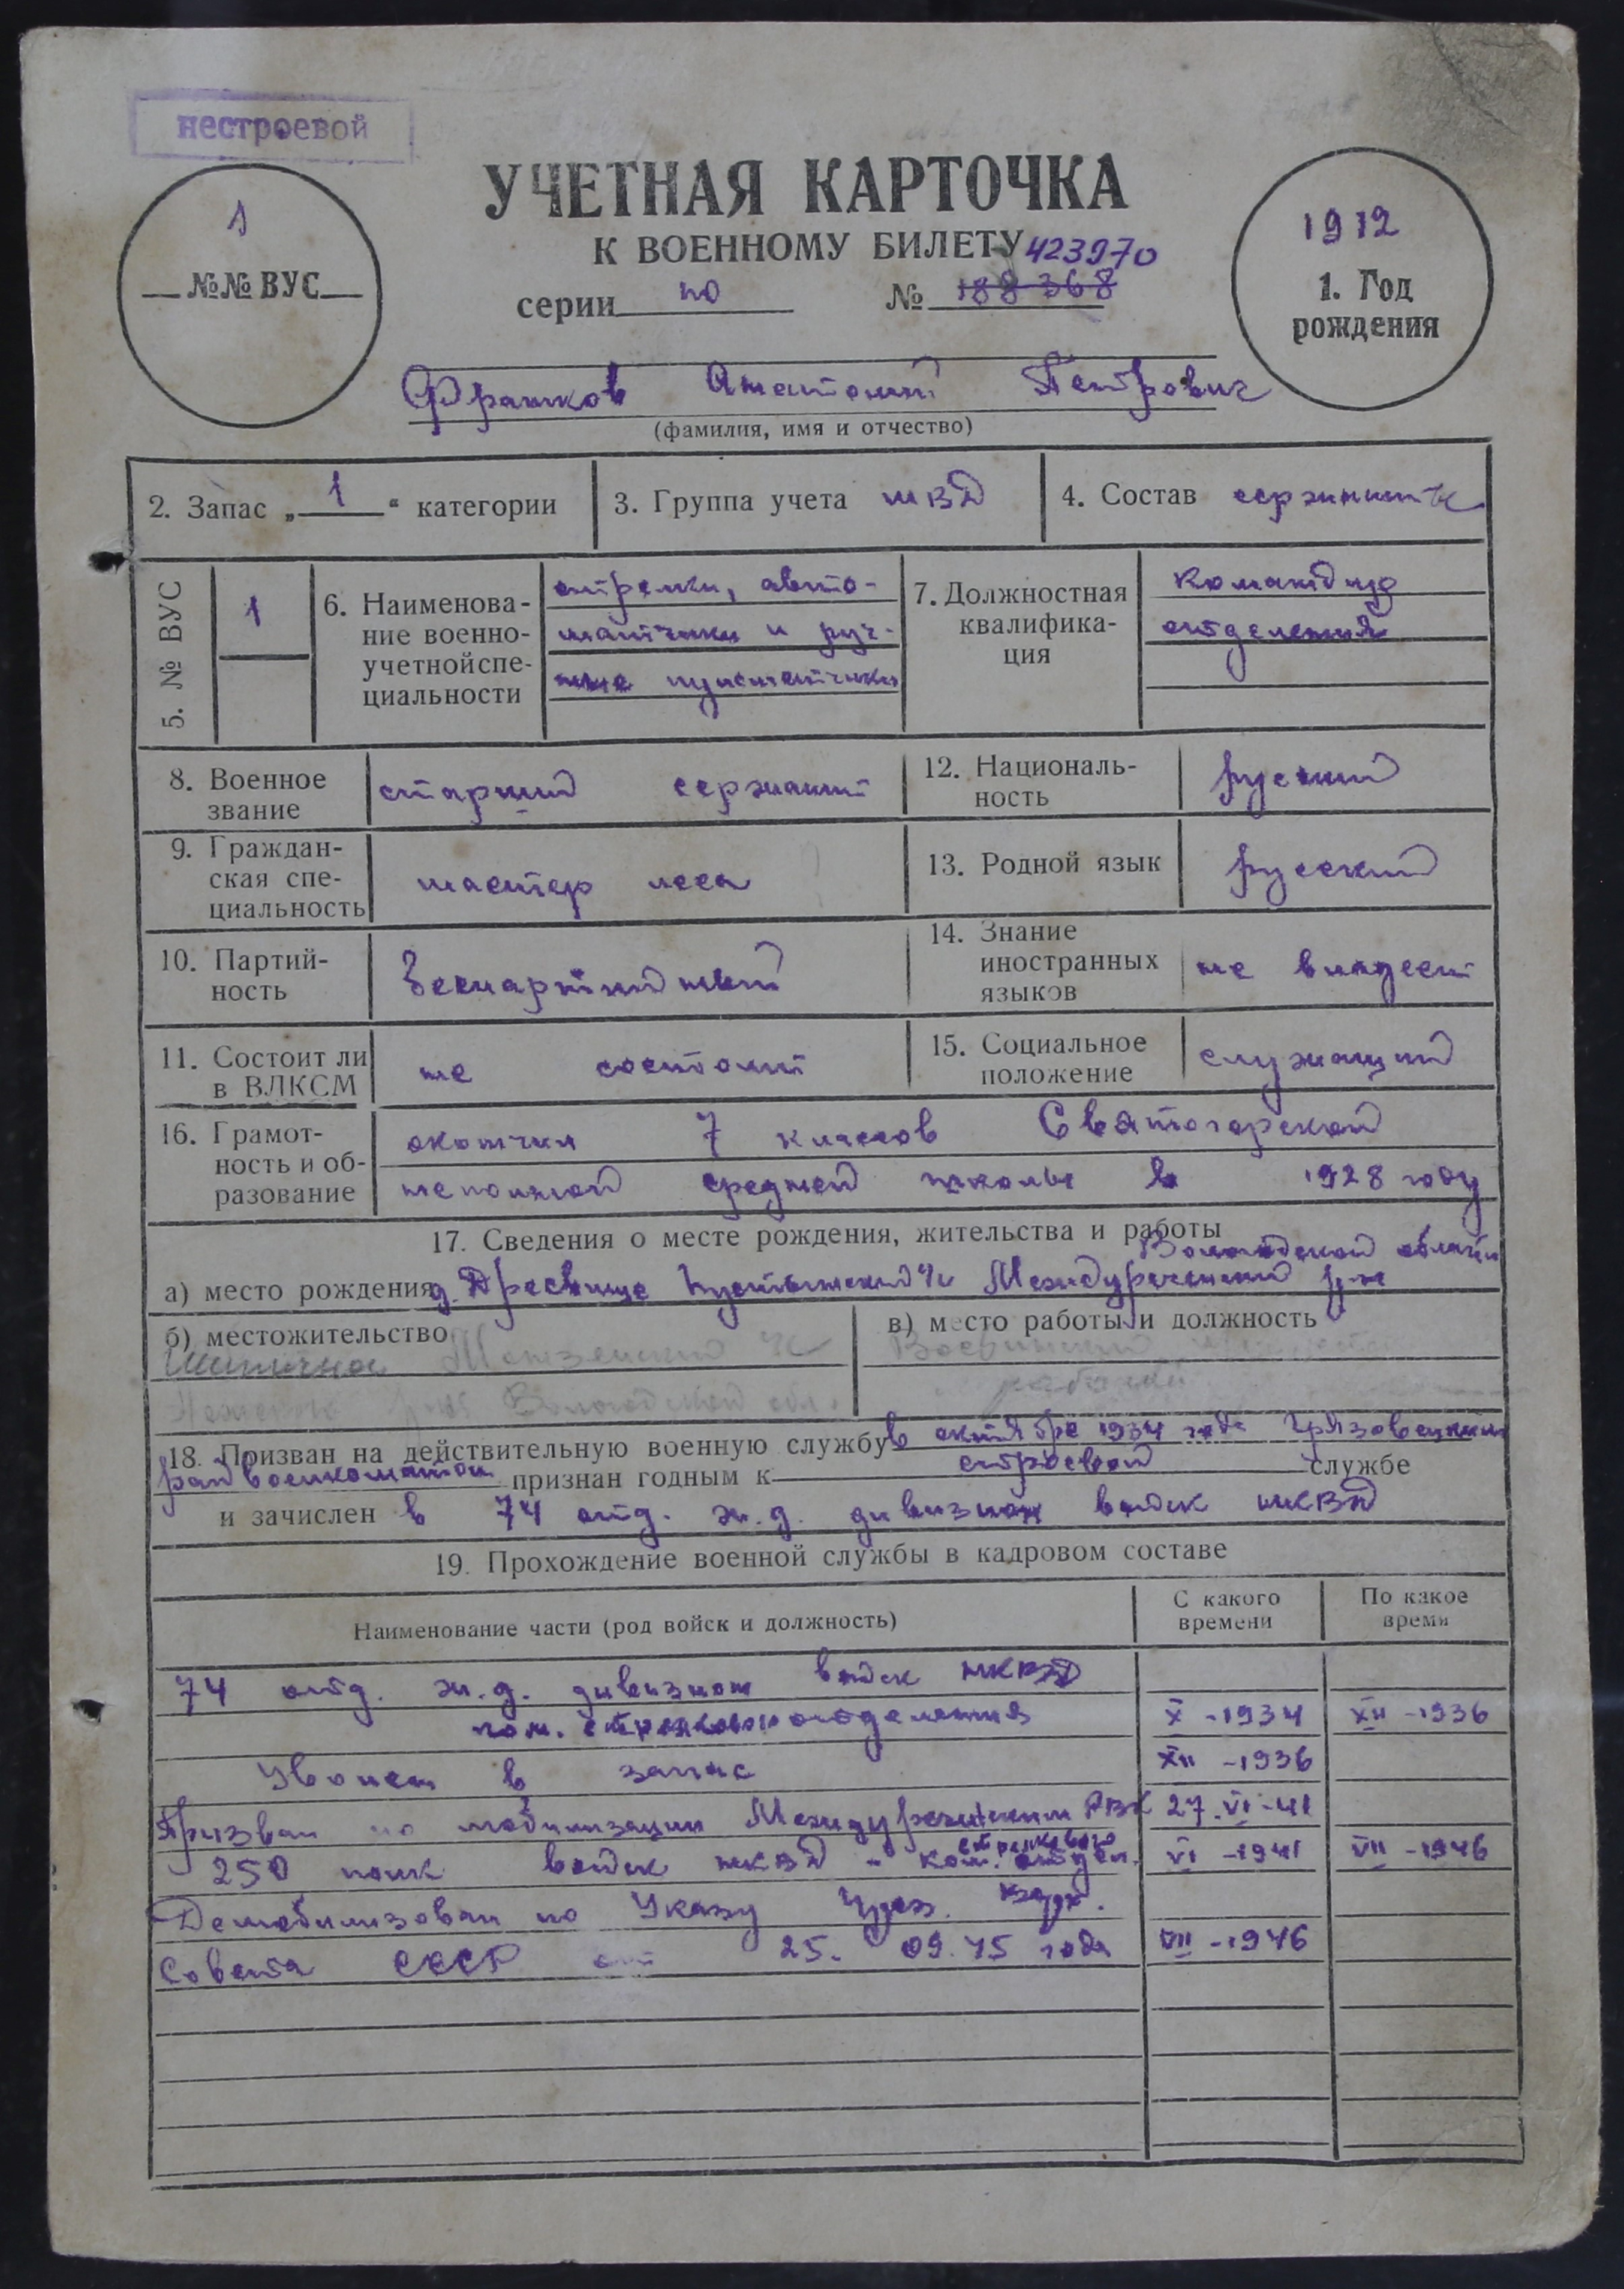 нестроевой
УЧЕТНАЯ КАРТОЧКА
К ВОЕННОМУ БИЛЕТУ 423970
1
№№ ВУС
серии по № 188368
1912
1. Год
рождения
Франков Анатолий Петрович
(фамилия, имя и отчество)
2. Запас „1“ категории
3. Группа учета МВД
4. Состав сержанты
5. № ВУС
1
6. Наименова-
ние военно-
учетной спе-
циальности
стрелки, авто-
матчики и руч-
ные пулеметчики
7. Должностная
квалифика-
ция
командир
отделения
8. Военное
звание
старший сержант
12. Националь-
ность
русский
9. Граждан-
ская спе-
циальность
мастер леса
13. Родной язык
русский
10. Партий-
ность
беспартийный
14. Знание
иностранных
языков
не владеет
11. Состоит ли
в ВЛКСМ
не состоит
15. Социальное
положение
служащий
16. Грамот-
ность и об-
разование
окончил 7 классов Святогорской
неполной средней школы в 1928 году
17. Сведения о месте рождения, жительства и работы
Вологодской области
а) место рождения д. Древнище Пустынский с/с Междуреченский р-н
б) местожительство
в) место работы и должность
Вологодской обл.
рабочий
18. Призван на действительную военную службу в октябре 1934 года Грязовецким
райвоенкоматом признан годным к строевой службе
и зачислен в 74 отд. ж.д. дивизион войск НКВД
19. Прохождение военной службы в кадровом составе
Наименование части (род войск и должность)
С какого
времени
По какое
время
74 отд. ж.д. дивизион войск НКВД
ком. стрелкового отделения X -1934 XII -1936
Уволен в запас XII -1936
Призван по мобилизации Междуреченским РВК 27.VI-41
стрелкового
250 полк войск НКВД - ком. отдел. VI -1941 VII -1946
Демобилизован по Указу През. Верх.
Совета СССР от 25. 09.45 года VII -1946